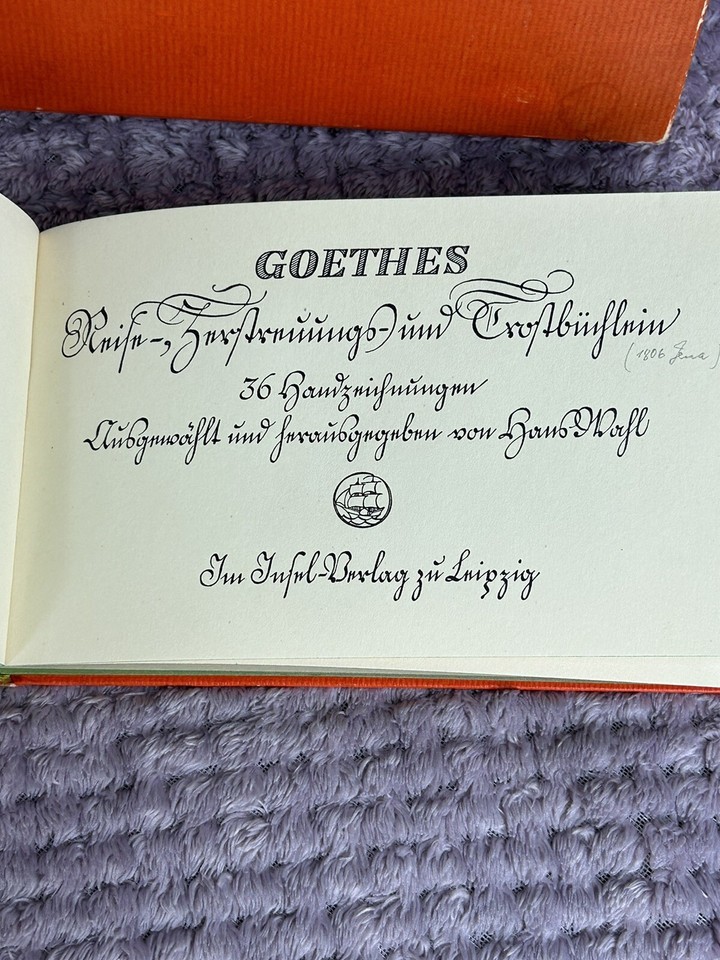 GOETHES
Reise-, Zerstreuungs- und Trostbüchlein
(1806 Jena)
36 Handzeichnungen
Ausgewählt und herausgegeben von Hans Wahl
Im Insel-Verlag zu Leipzig